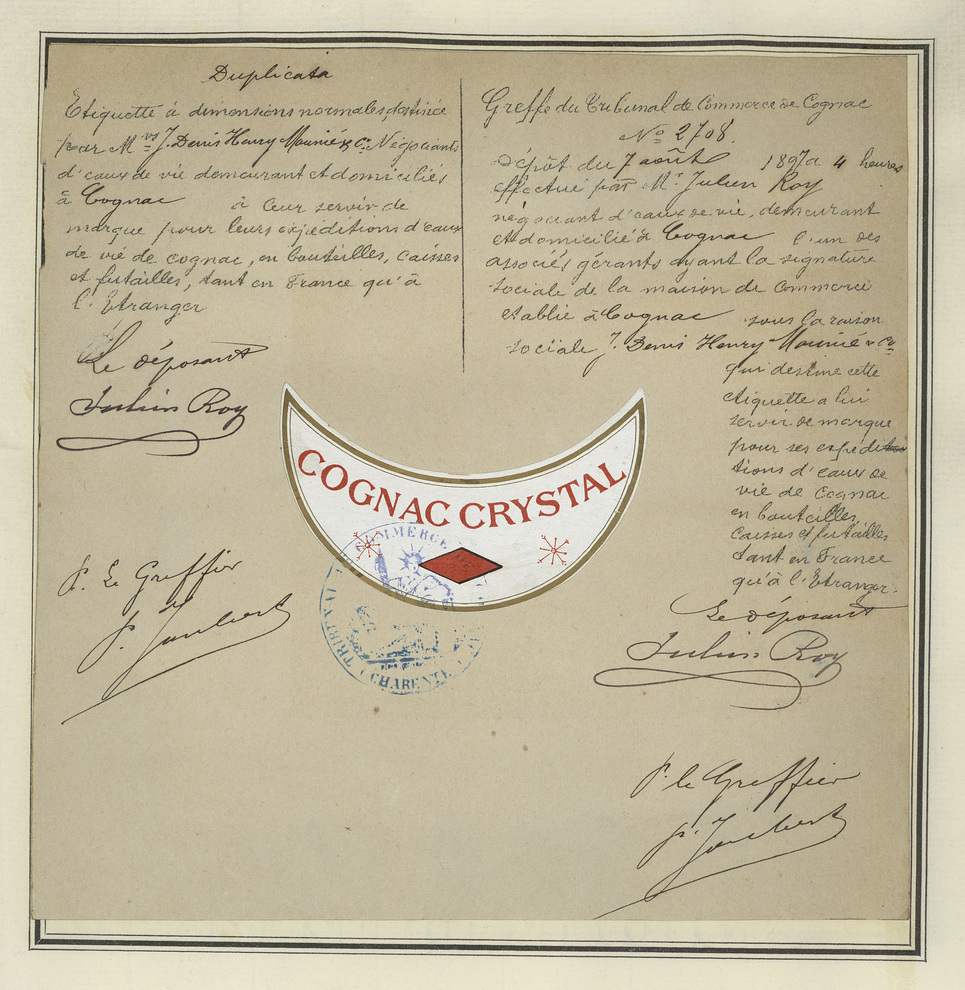 Duplicata
Etiquette à dimensions normales destinée
par Mrs J. Denis Henry Mounié & Co. Négociants
d'eaux de vie demeurant et domiciliés
à Cognac à leur servir de
marque pour leurs expéditions d'eaux
de vie de cognac, en bouteilles, caisses
et futailles, tant en France qu'à
l'Etranger
Le déposant
Julien Roy
P. Le Greffier
P. Joubert
Greffe du Tribunal de Commerce de Cognac
No 2708.
Dépôt du 7 août 1897 à 4 heures
effectué par Mr Julien Roy
négociant d'eaux de vie, demeurant
et domicilié à Cognac l'un des
associés gérants ayant la signature
sociale de la maison de Commerce
établie à Cognac sous la raison
sociale J. Denis Henry Mounié & Co
qui destine cette
étiquette a lui
servir de marque
pour ses expédi
tions d'eaux de
vie de Cognac
en bouteilles,
caisses et futailles
tant en France
qu'à l'Etranger.
Le déposant
Julien Roy
P. le Greffier
P. Joubert
COGNAC CRYSTAL
COMMERCE
CHARENTE